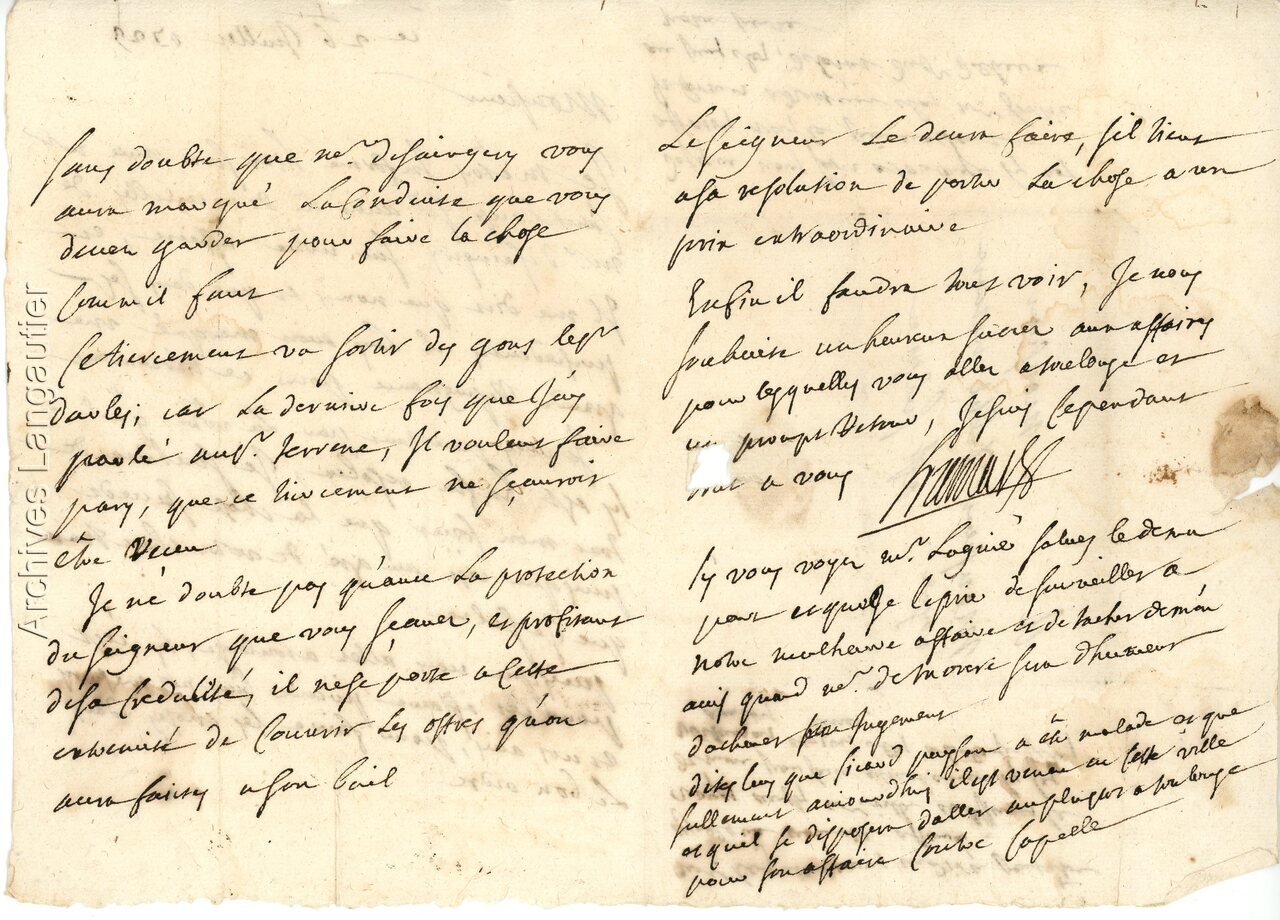 sans doubte que mr. desaingery vous
aura marqué La Conduite que vous
devez garder pour faire la chose
Comm il faut
Ce tiercement va sortir des gons le sr.
daules, car La derniere fois que J'ay
parlé au sr. terrene, Il vouloit faire
pary, que ce tiercement ne sçauroit
être receu
Je ne doubte pas qu'avec La protection
du seigneur que vous sçavez, et profitant
de sa Credulité, il ne se porte a Cette
extremité de Couvrir Les offres qu'on
aura faites a son bail
Le seigneur Le devra faire, s'il tient
a sa resolution de porter La chose a un
prix extraordinaire
Enfin il faudra tout voir, Je vous
souhaite un heureux succez aux affaires
pour lesquelles vous allez a toulouse et
un prompt retour, Je suis Cependant
tout a vous
sy vous voyez mr. Lagrie salues le de ma
part et que Je le prie de surveiller a
notre malheureuse affaire et de tacher de
avis quand mr. de sera d'humeur
d'achever Jugement
dites luy que sicard a été malade et que
sullement aujourdhuy il est venu en Cette ville
et qu'il se disposera d'aller au plustot a toulouse
pour son affaire Contre Capelle
Archives Langautier